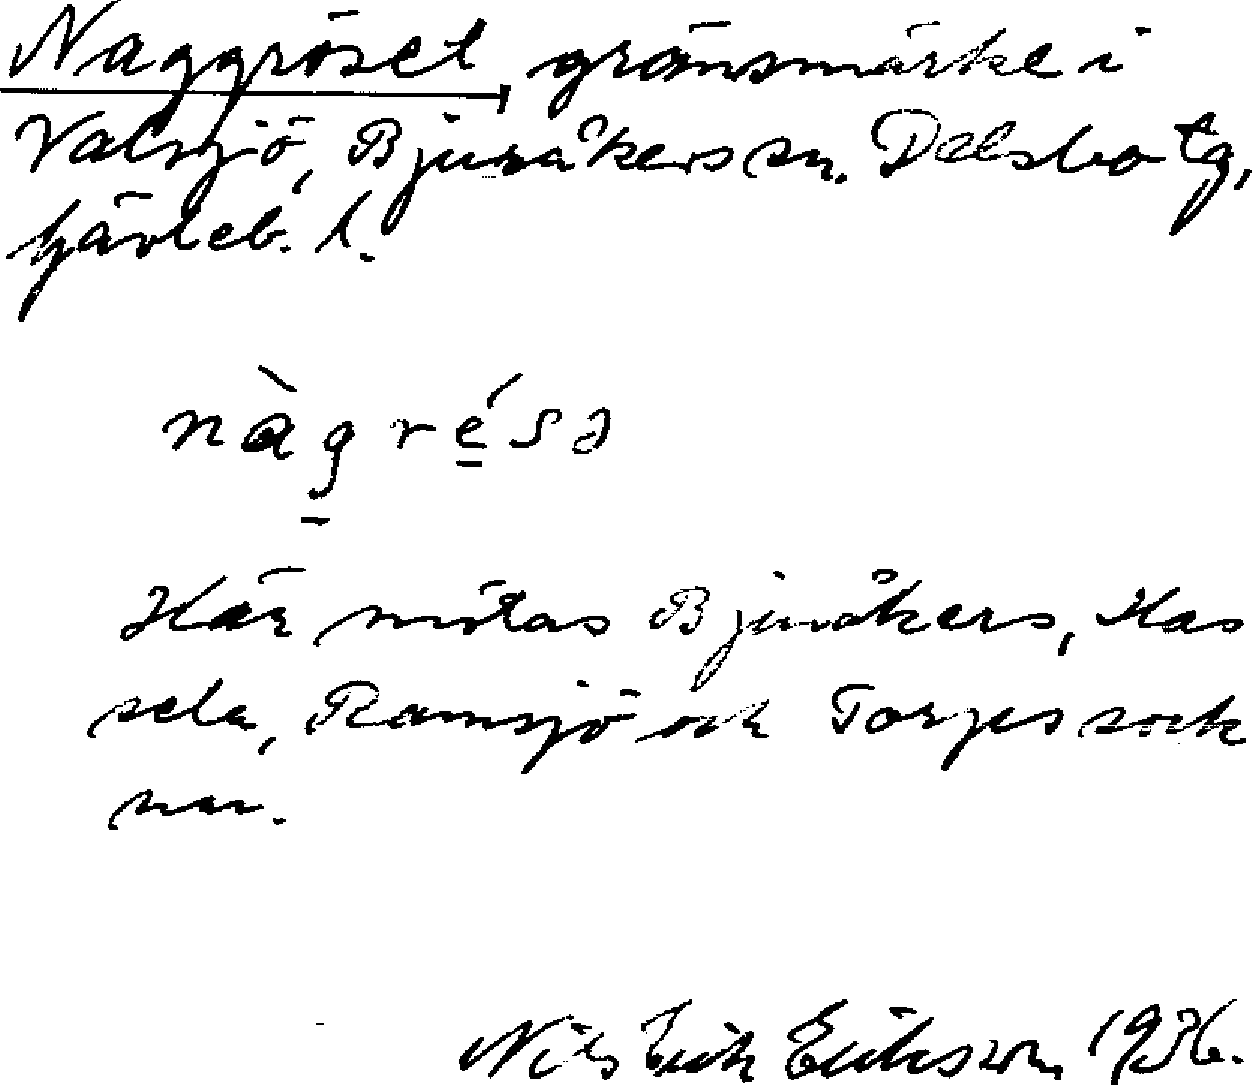 Naggröset, gränsmärke i
Valsjö, Bjuråkers sn. Delsbo tg,
Gävleb. l.
nàgrésə
Här mötas Bjuråkers, Has
sela, Ramsjö och Torps sock
nar.
Nils Erik Eriksson 1936.